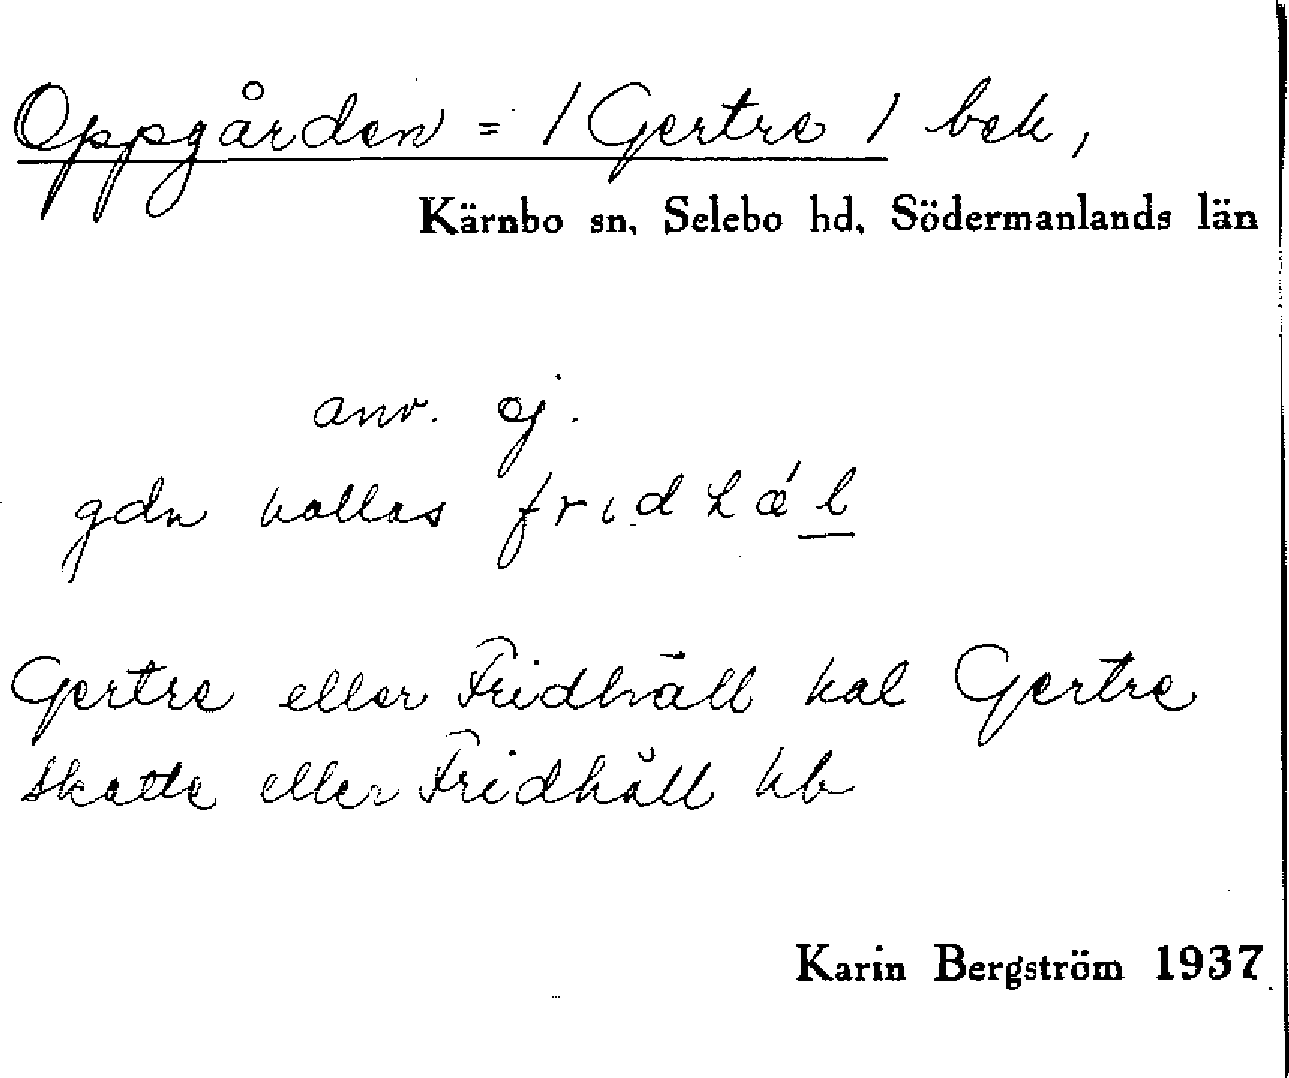 Oppgården = / Gertre / bek,
Kärnbo sn, Selebo hd, Södermanlands län
anv. ej.
gdn kallas
Gertre eller Fridhäll kal Gertre
skatte eller Fridhäll kb
Karin Bergström 1937